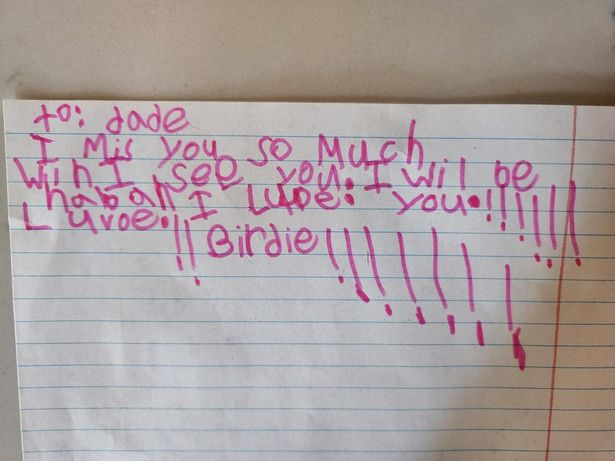 to: dade
I Mis you so Much
Win I see you. I wil be
habah I Luve. you.!!!!!!!
Luvoe.!!Birdie!!!!!!!!